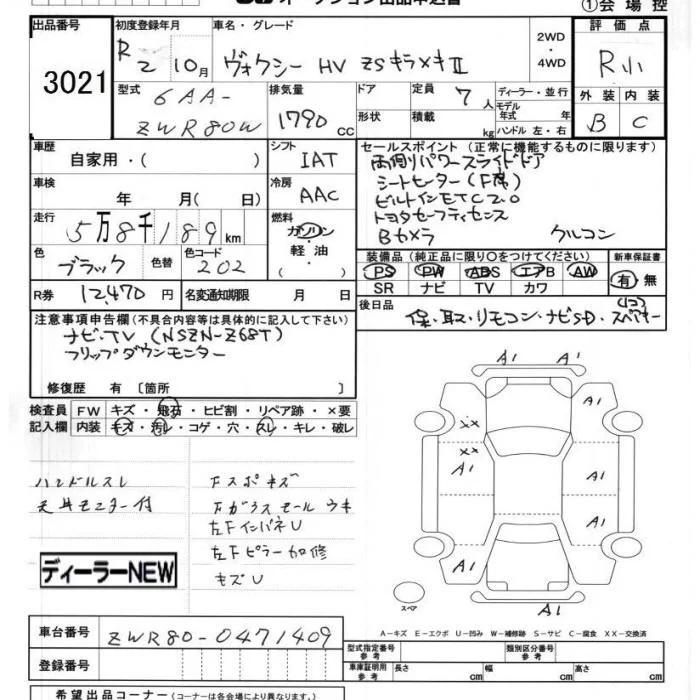 オークション出品申込書
①会場控
出品番号 3021
初度登録年月 R2 10月
車名・グレード ヴォクシー HV ZSキラメキⅡ
2WD
・
4WD
評価点 R小
型式 6AA-ZWR80W
排気量 1790 cc
ドア
形状
定員 7人
積載 kg
ディーラー・並行
モデル年式 年
ハンドル 左・右
外装 B
内装 C
車歴 自家用・( )
シフト IAT
セールスポイント (正常に機能するものに限ります)
両側パワースライドドア
シートヒーター(F席)
ビルトインETC2.0
トヨタセーフティセンス
Bカメラ クルコン
車検 年 月( 日)
冷房 AAC
走行 5万8千189km
燃料 ガソリン・軽油・( )
色 ブラック 色替
色コード 202
装備品(純正品に限り○をつけてください) 新車保証書
PS PW ABS エアB AW 有・無
SR ナビ TV カワ
R券 12,470円
名変通知期限 月 日
後日品 保・取・リモコン・ナビSD・スペアキー
注意事項申告欄(不具合内容等は具体的に記入して下さい)
ナビ・TV (NSZN-Z68T)
フリップダウンモニター
修復歴 有 〔箇所 〕
検査員記入欄
FW キズ・飛石・ヒビ割・リペア跡・×要
内装 キズ・汚レ・コゲ・穴・スレ・キレ・破レ
ハンドルスレ
天井モニター付
Fスポキズ
Fガラスモールウキ
左FインパネU
左Fピラー加修
キズU
ディーラーNEW
A1 A1
A1
XX
XX
A1 A1
A1
A1
A1
スペア
A-キズ E-エクボ U-凹み W-補修跡 S-サビ C-腐食 XX-交換済
車台番号 ZWR80-0471409
登録番号
型式指定番号 参考
類別区分番号 参考
車庫証明用 参考 長さ cm 幅 cm 高さ cm
希望出品コーナー(コーナーは各会場により異なります。)